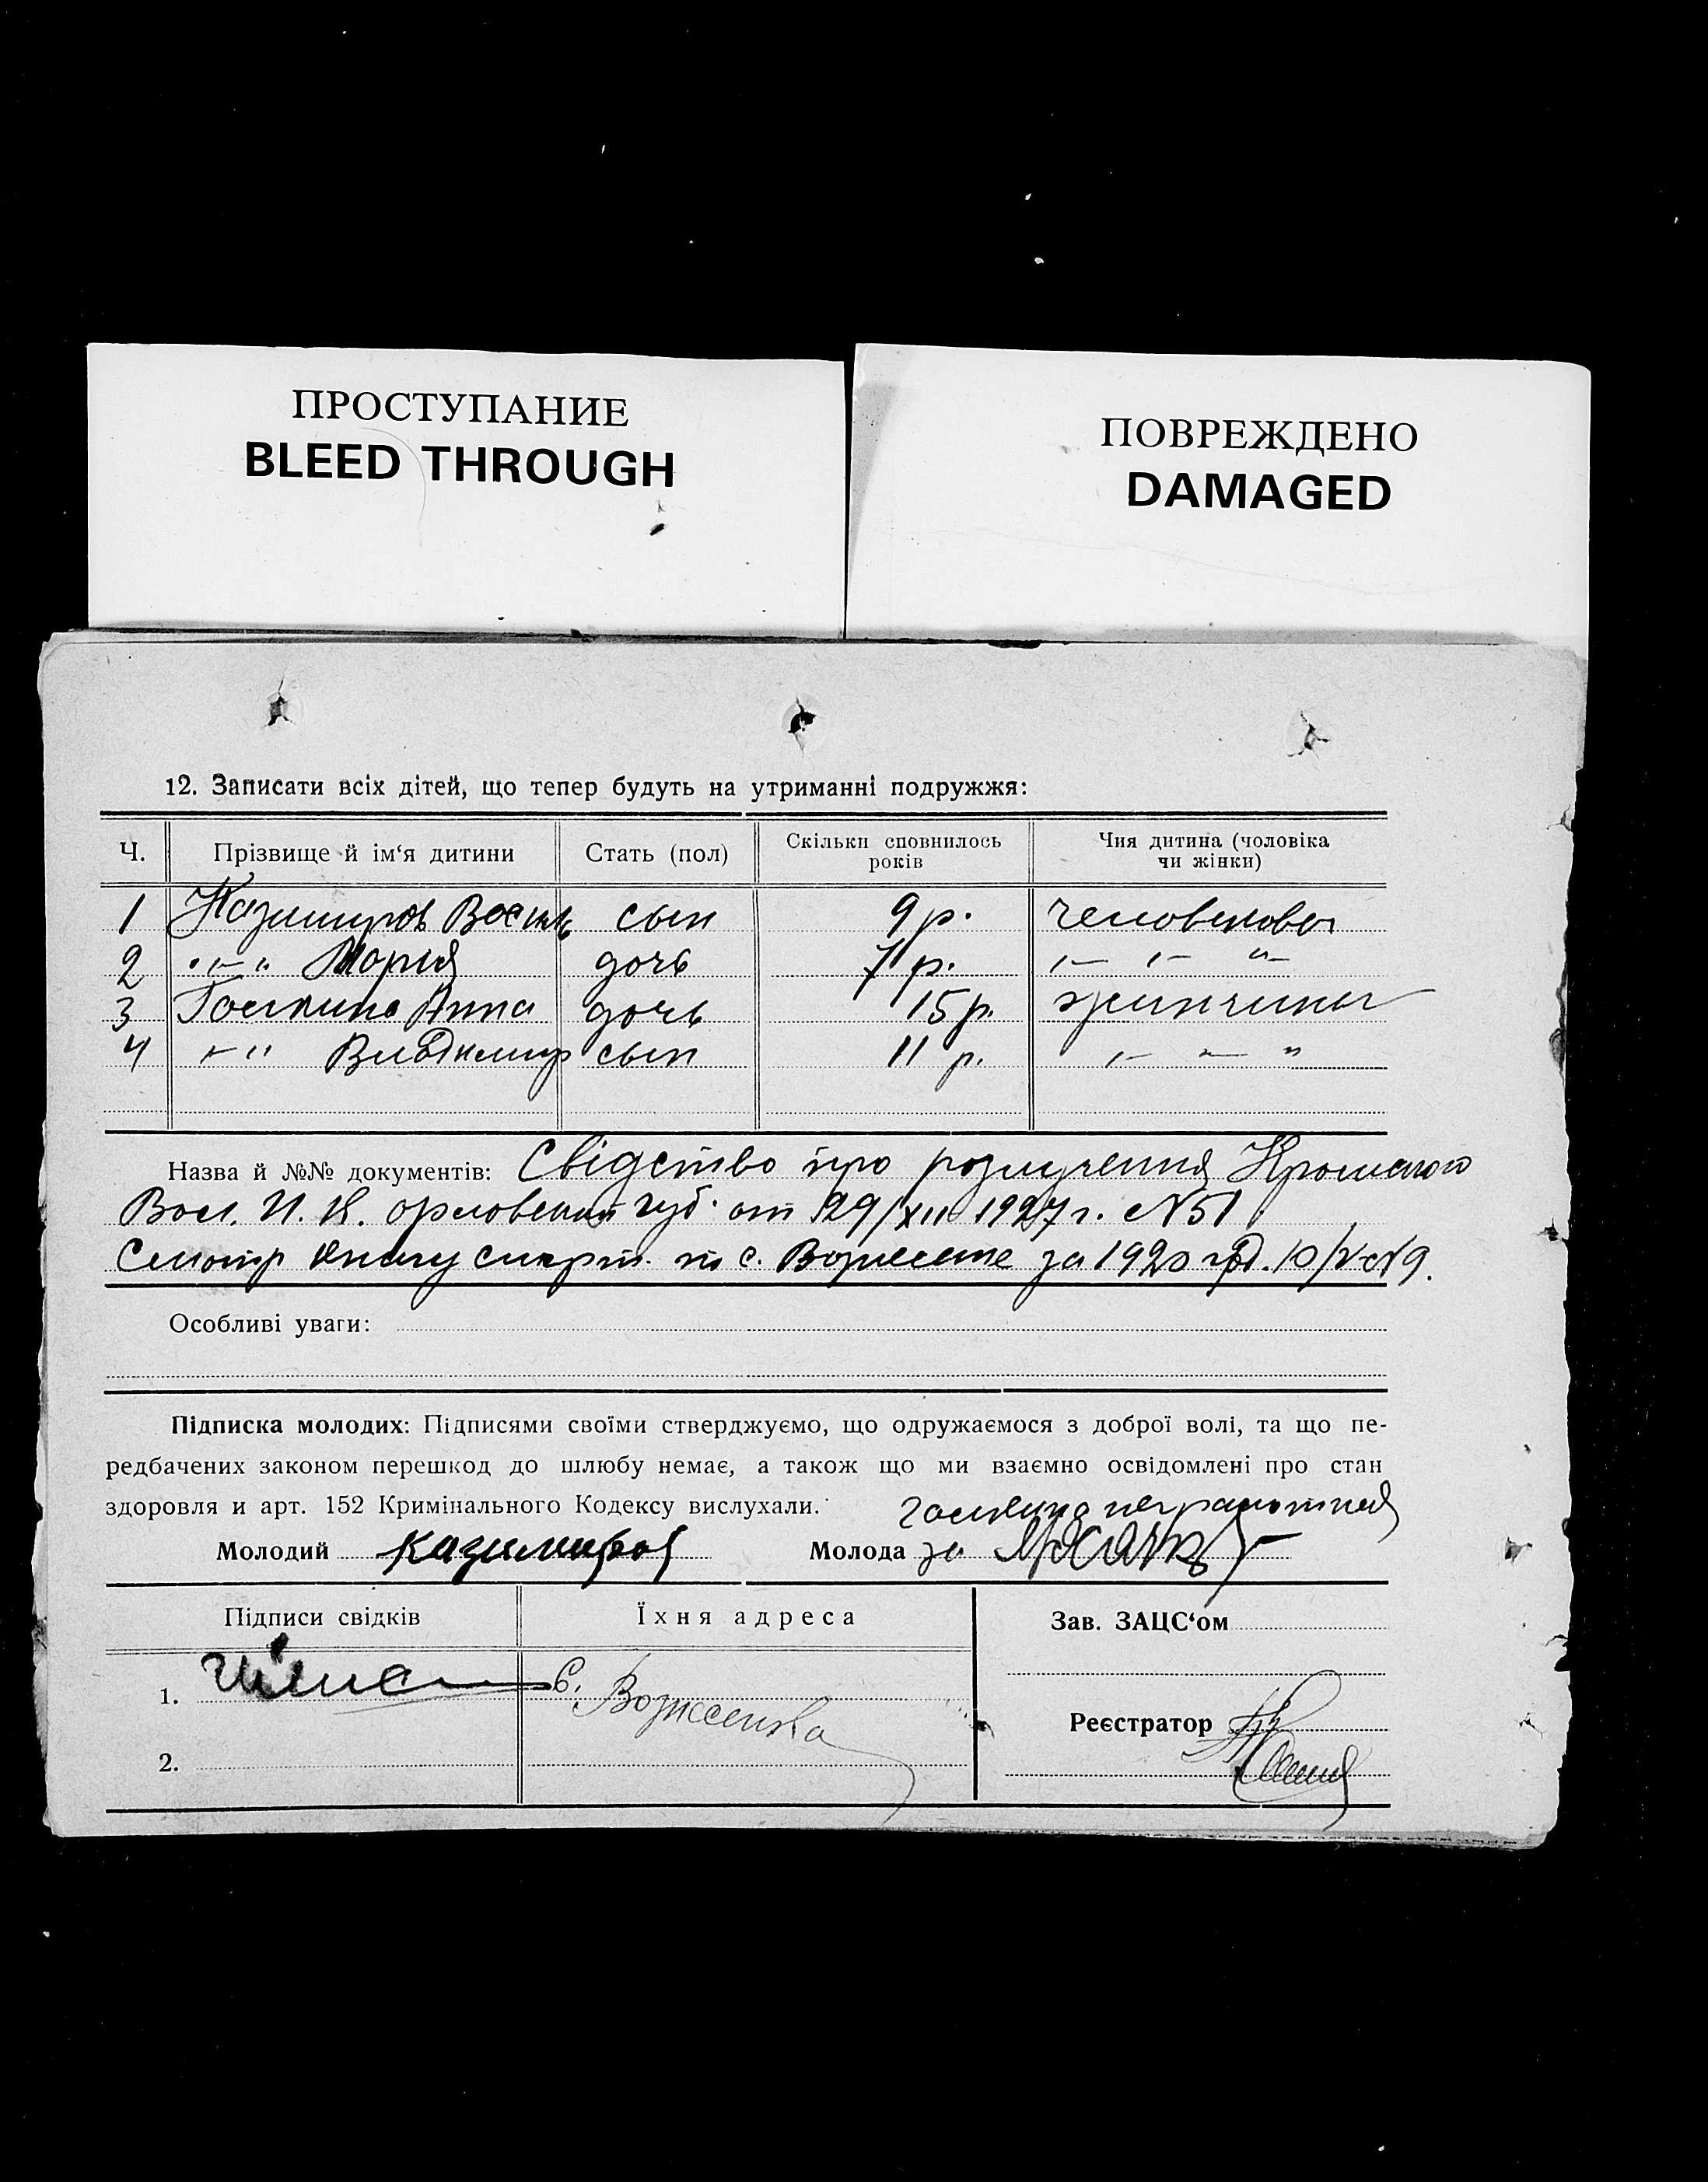 ПРОСТУПАНИЕ
BLEED THROUGH
ПОВРЕЖДЕНО
DAMAGED
12. Записати всіх дітей, що тепер будуть на утриманні подружжя:
Ч. Прізвище й ім‘я дитини Стать (пол) Скільки сповнилось років Чия дитина (чоловіка чи жінки)
1 Казимиров сын 9 р.
2 Мария дочь 7 р.
3 Анна дочь 15 р.
4 Владимир сын 11 р.
Назва й №№ документів: Свідство про розлучення
Вол. И. К. орловской губ. от 29/XII 1927 г. №51
книгу смерт. по с. за 1920 год. 10/V №9.
Особливі уваги:
Підписка молодих: Підписями своїми стверджуємо, що одружаємося з доброї волі, та що пе-
редбачених законом перешкод до шлюбу немає, а також що ми взаємно освідомлені про стан
здоровля и арт. 152 Кримінального Кодексу вислухали. неграмотная
Молодий Казимиров Молода за
Підписи свідків Їхня адреса Зав. ЗАЦС‘ом
1. с. Вознесенка
Реєстратор
2.